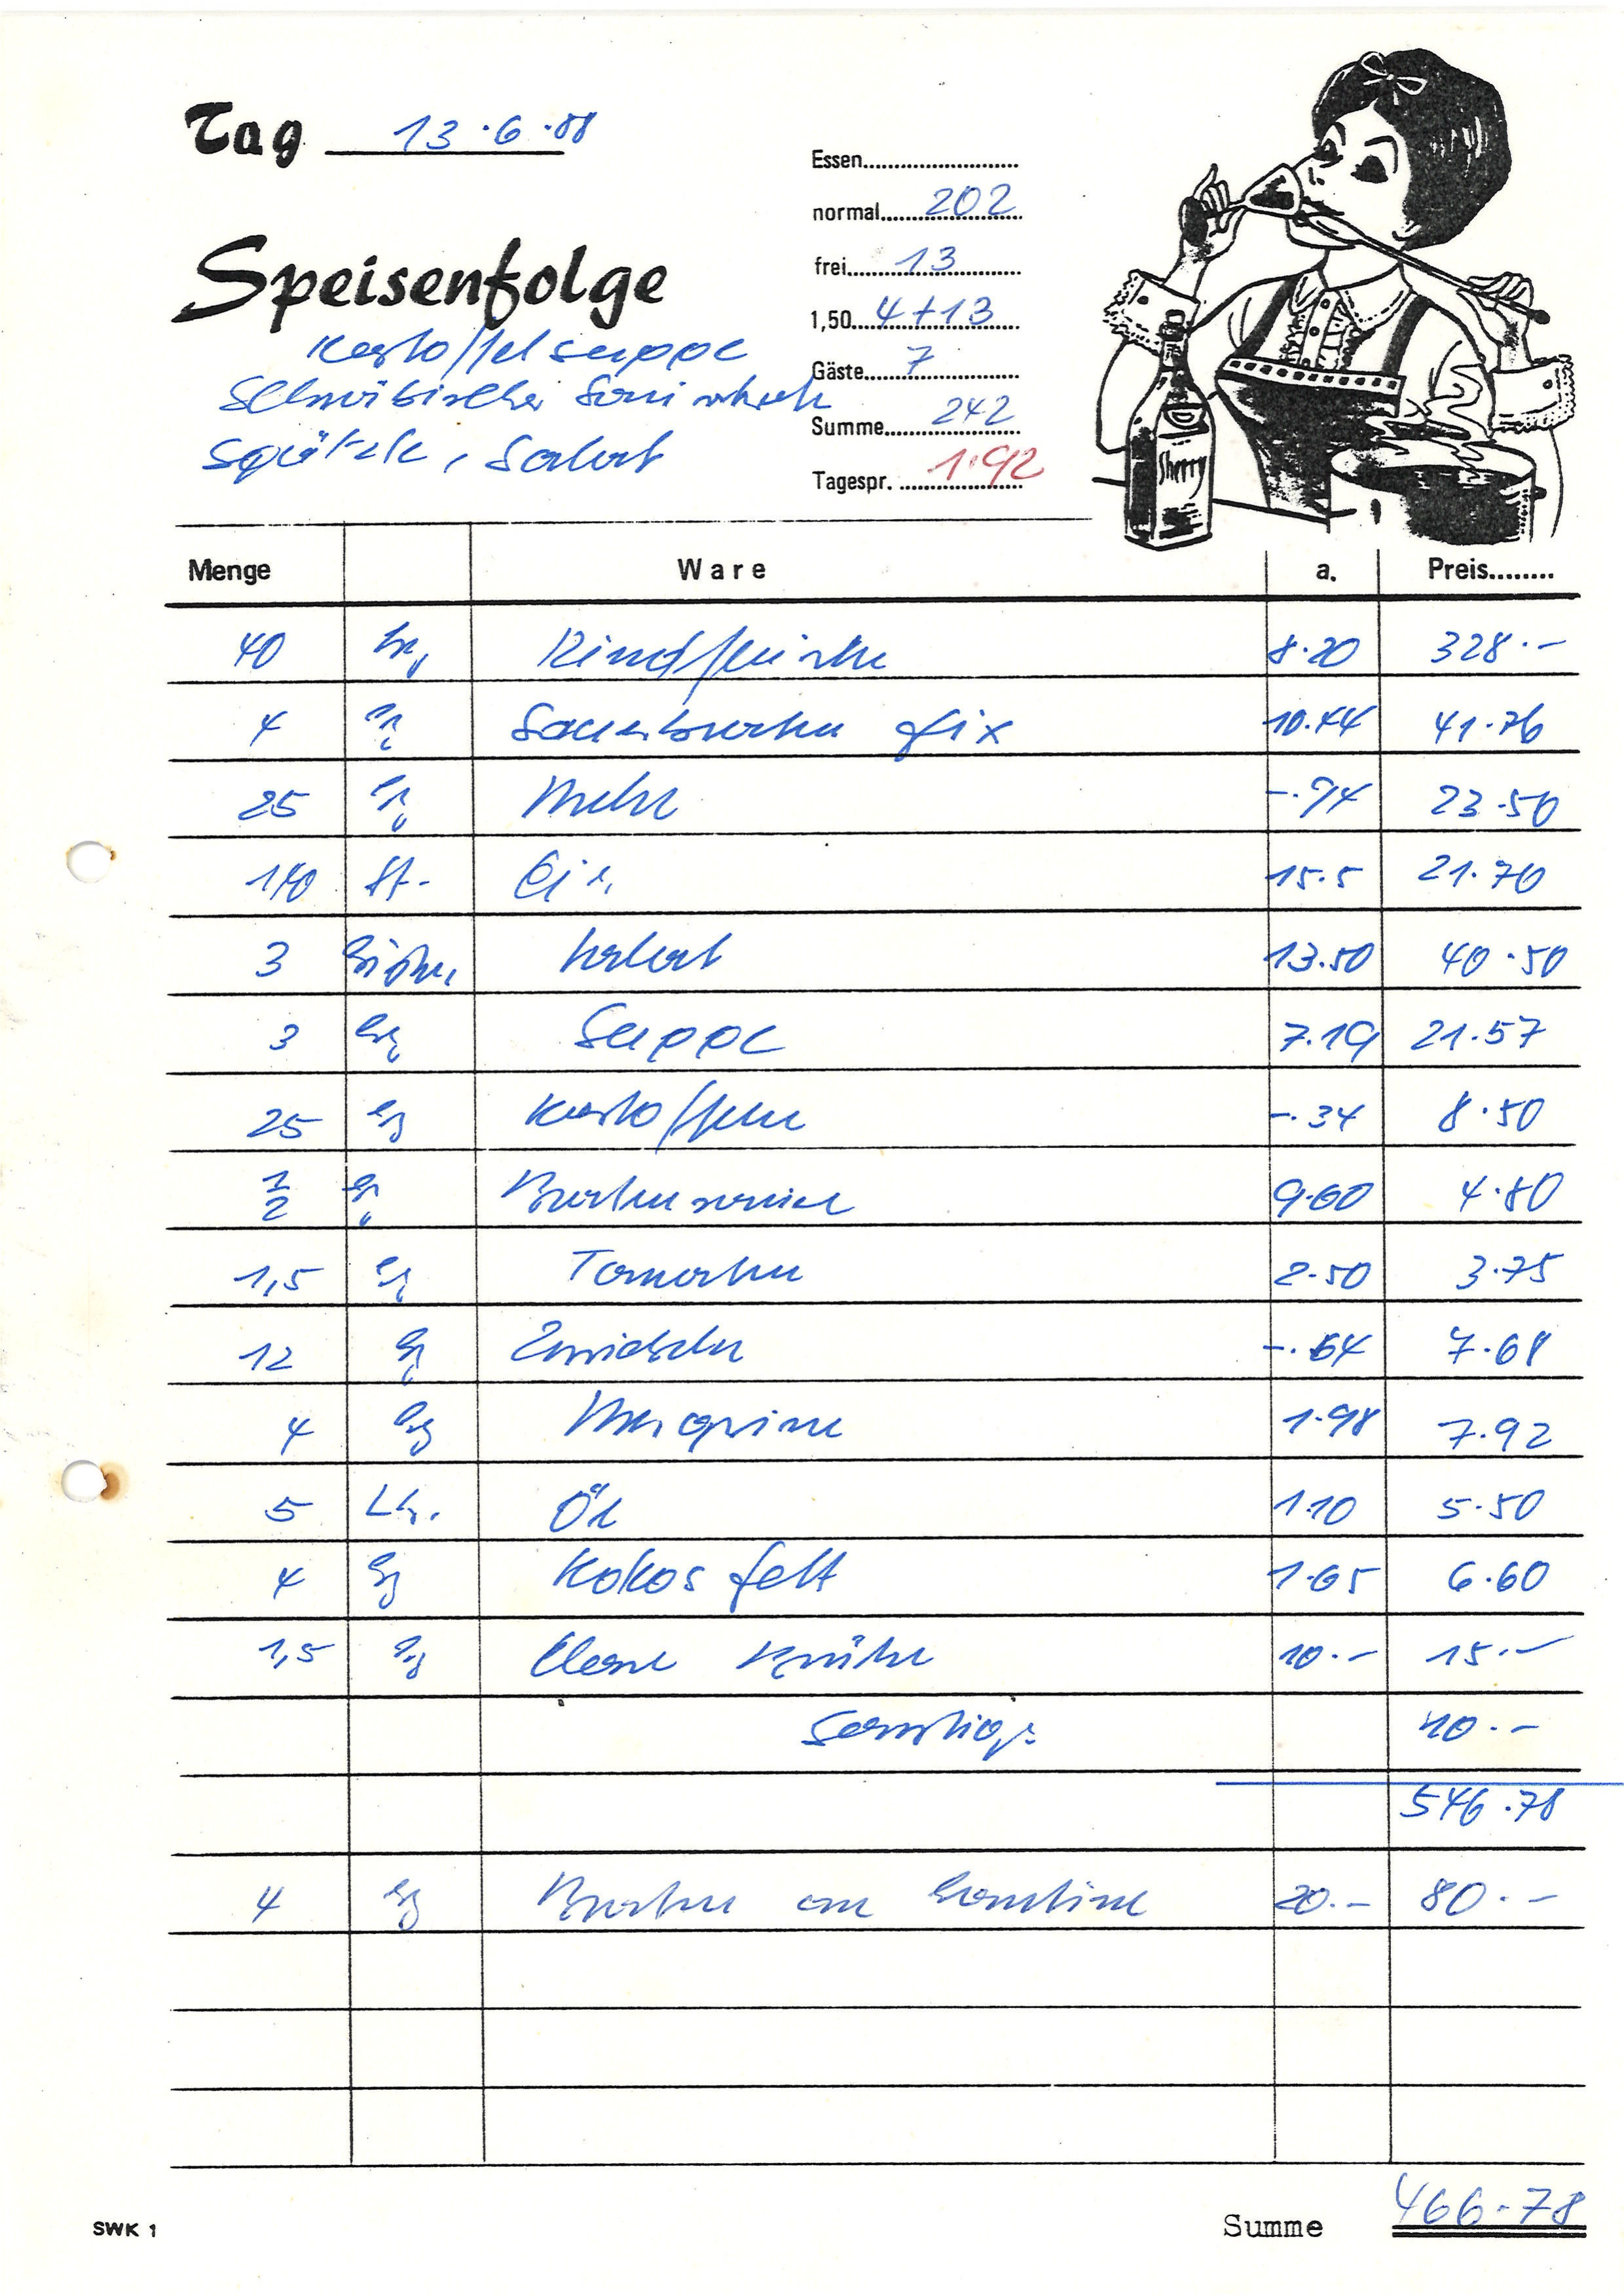 Tag 13.6.88
Speisenfolge
Kartoffelsuppe
Schwäbischer Sauerbraten
Spätzle, Salat
Essen
normal 202
frei 13
1,50 4+13
Gäste 7
Summe 242
Tagespr. 1.92
Sherry
Menge Ware a. Preis
40 kg Rindfleisch 8.20 328.-
4 kg Sauerbraten fix 10.44 41.76
25 kg Mehl -.94 23.50
140 St. Eier 15.5 21.70
3 Salat 13.50 40.50
3 kg Suppe 7.19 21.57
25 kg Kartoffeln -.34 8.50
1/2 kg 9.60 4.80
1,5 kg Tomaten 2.50 3.75
12 kg Zwiebeln -.64 7.68
4 kg Margarine 1.98 7.92
5 Ltr. Öl 1.10 5.50
4 kg Kokosfett 1.65 6.60
1,5 kg Klare Brühe 10.- 15.-
Sonstiges 10.-
546.78
4 kg Braten an Kantine 20.- 80.-
SWK 1
Summe 466.78